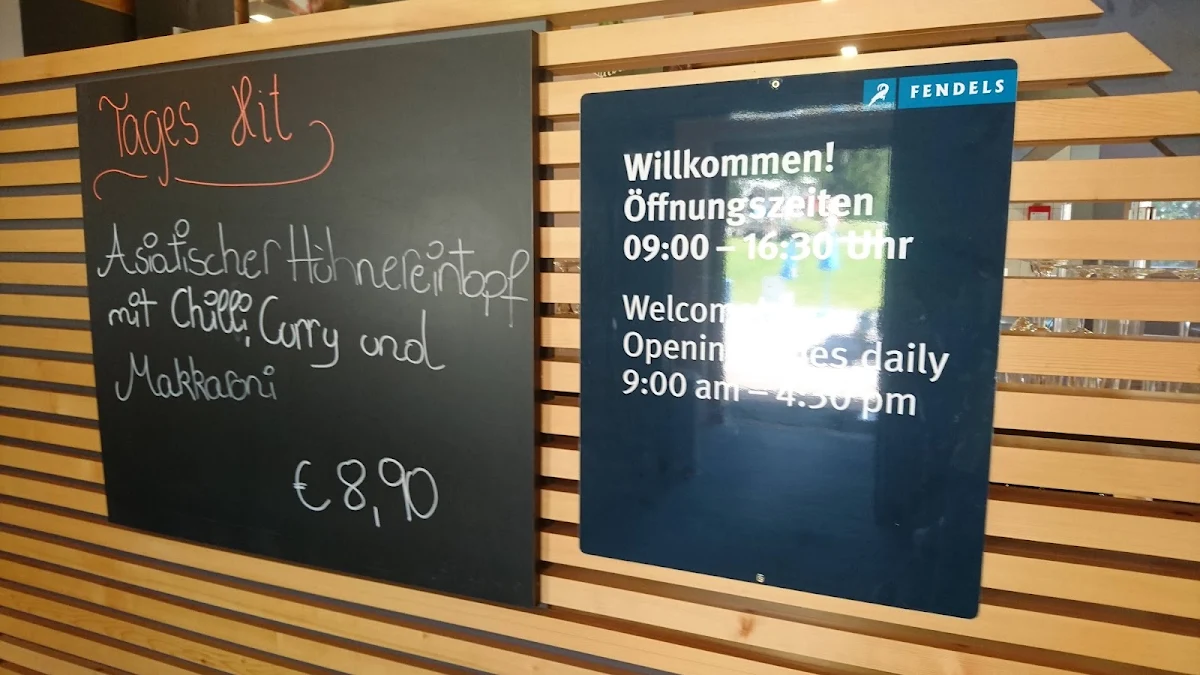 Tages Hit
Asiatischer Hühnereintopf
mit Chilli, Curry und
Makkaroni
€ 8,90
FENDELS
Willkommen!
Öffnungszeiten
09:00 – 16:30 Uhr
daily
9:00 am – 4:30 pm